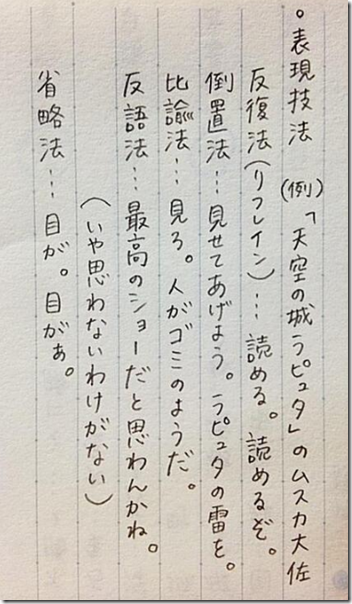 。表現技法　(例)「天空の城ラピュタ」のムスカ大佐
反復法(リフレイン)…読める。読めるぞ。
倒置法…見せてあげよう。ラピュタの雷を。
比諭法…見ろ。人がゴミのようだ。
反語法…最高のショーだと思わんかね。
(いや思わないわけがない)
省略法…目が。目がぁ。